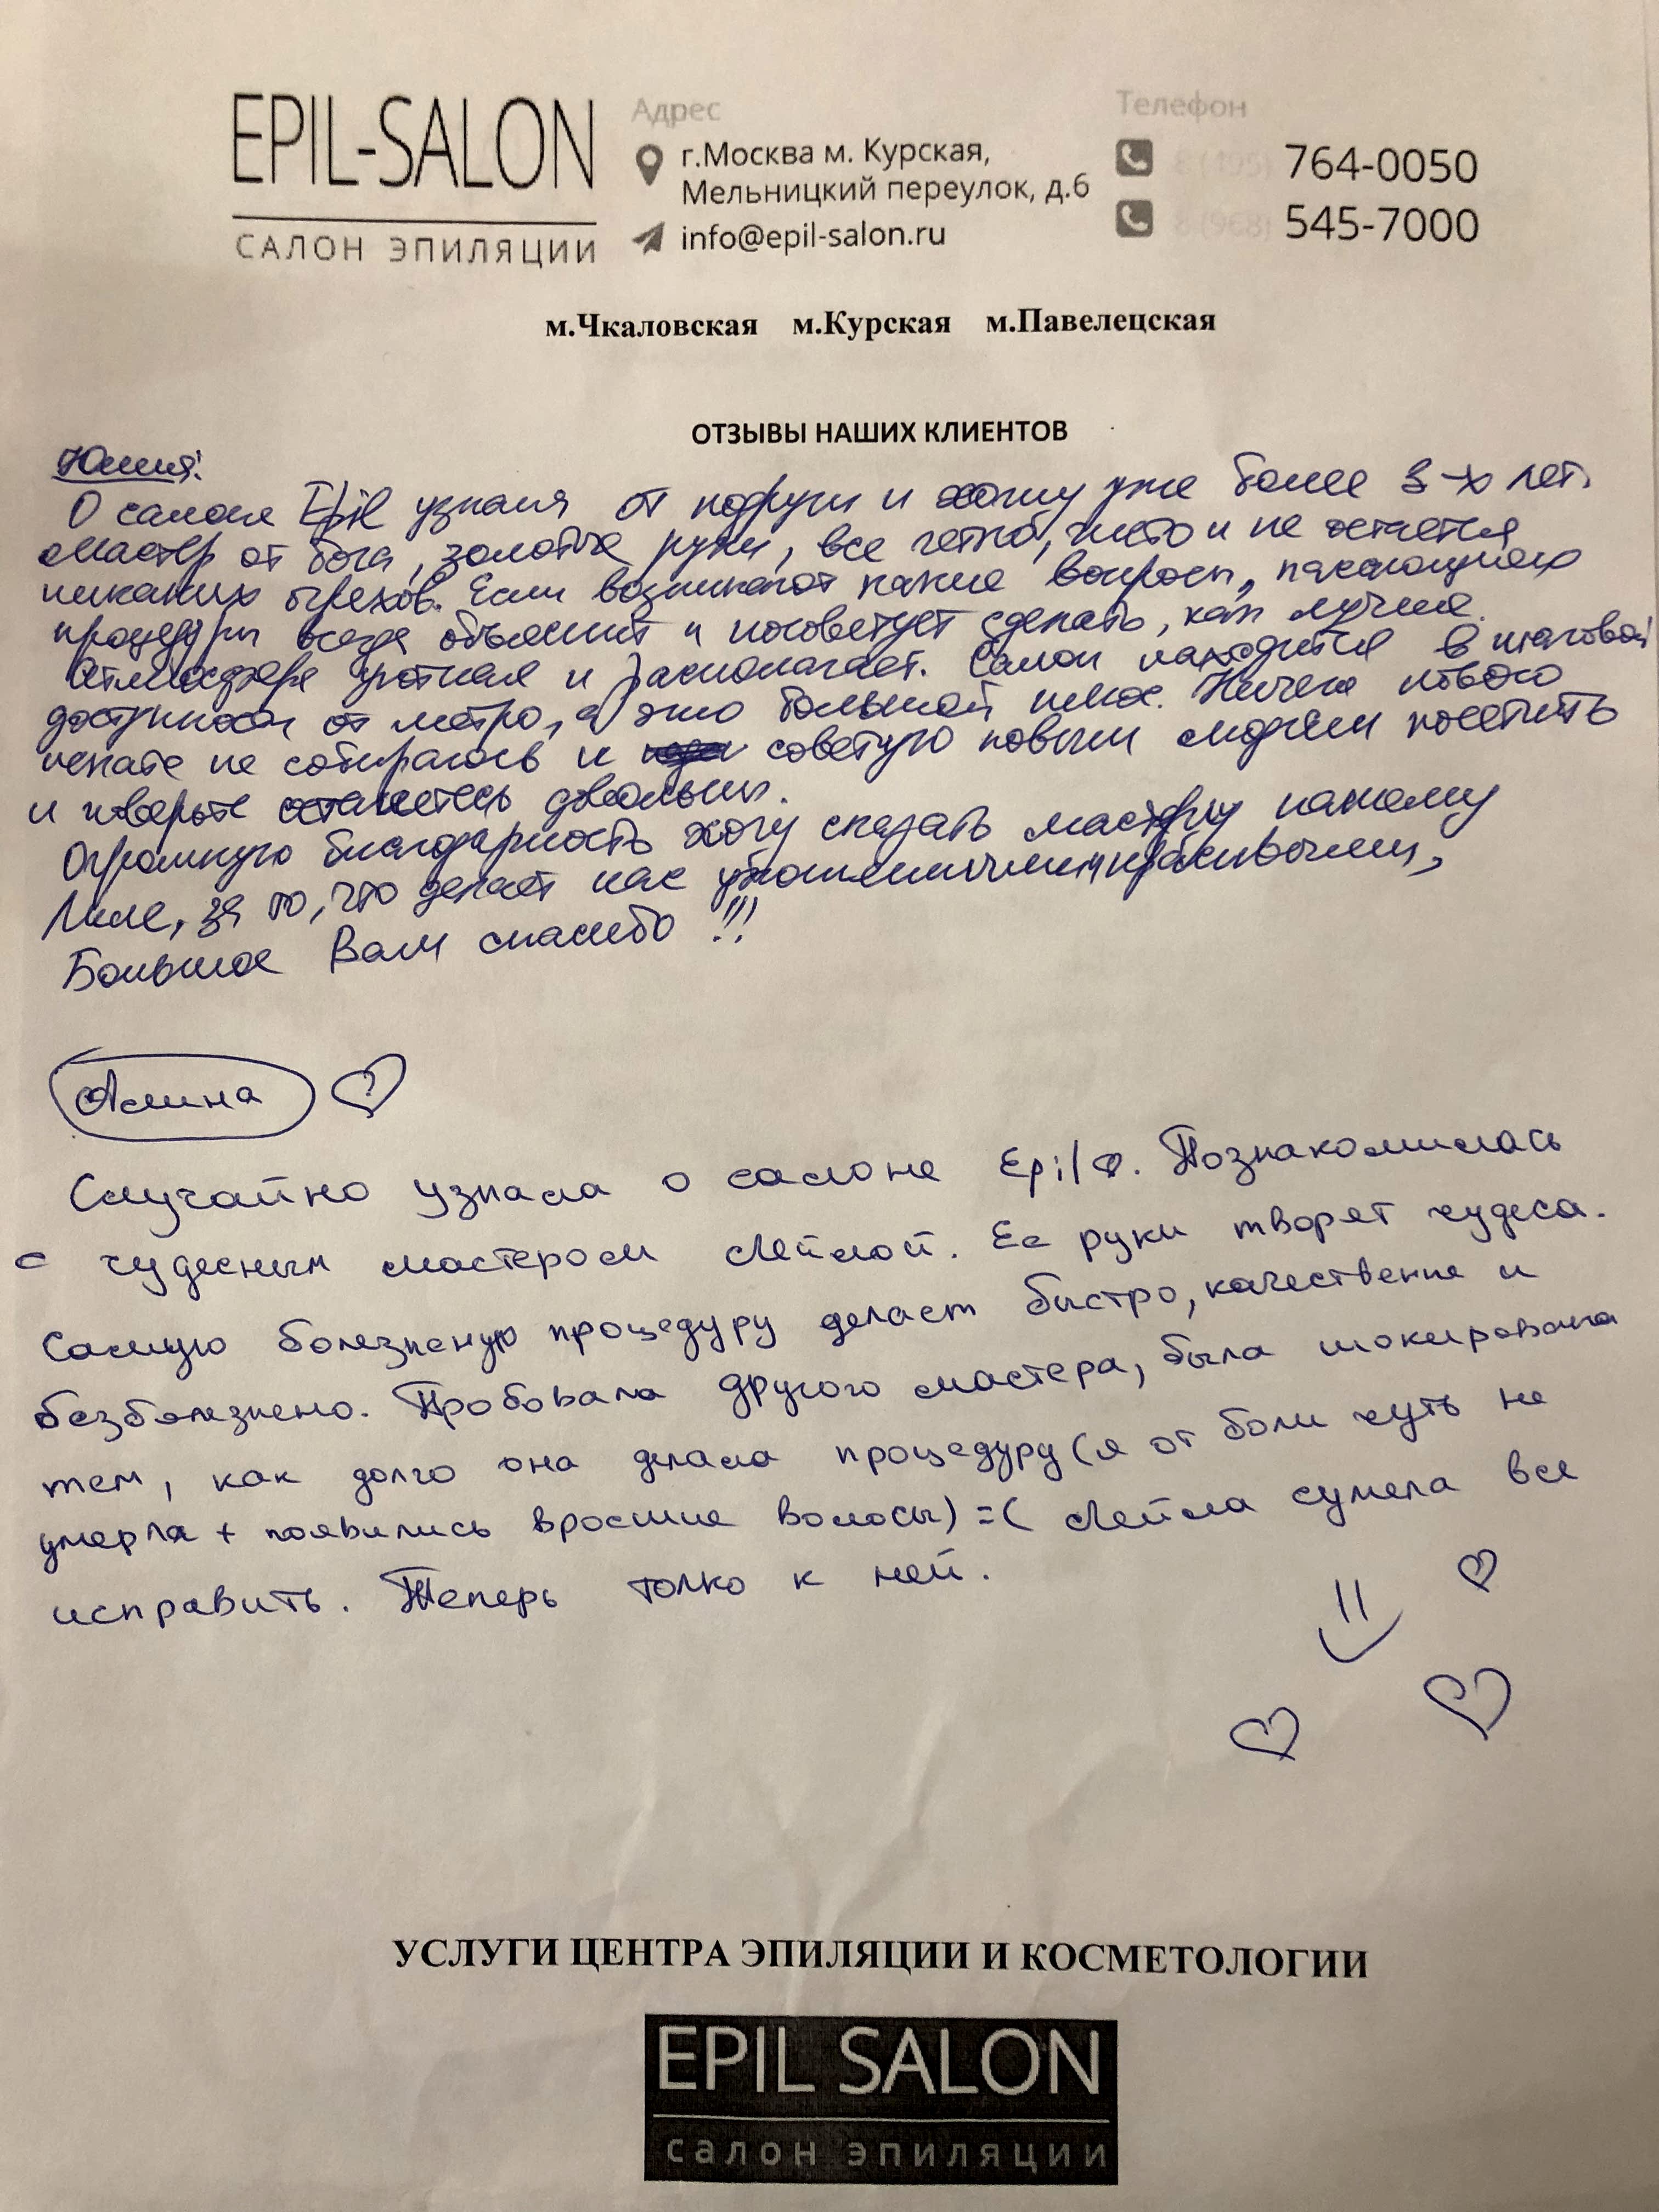 EPIL-SALON
САЛОН ЭПИЛЯЦИИ
Адрес
г.Москва м. Курская,
Мельницкий переулок, д.6
info@epil-salon.ru
Телефон
8 (495) 764-0050
8 (968) 545-7000
м.Чкаловская м.Курская м.Павелецская
ОТЗЫВЫ НАШИХ КЛИЕНТОВ
Юлия:
О салоне Epil узнала от подруги и хожу уже более 3-х лет.
Мастер от бога, золотые руки, все четко, чисто и не остается
никаких огрехов. Если возникают какие вопросы, касающиеся
процедуры всегда объяснит и посоветует сделать, как лучше.
Атмосфера уютная и располагает. Салон находится в шаговой
доступности от метро, а это большой плюс. Ничего нового
искать не собираюсь и советую новым людям посетить
и поверьте останетесь довольны.
Огромную благодарность хочу сказать мастеру нашему
Лиле, за то, что делает нас красивыми,
Большое Вам спасибо!!!
Алина
Случайно узнала о салоне Epil. Познакомилась
с чудесным мастером Лейлой. Ее руки творят чудеса.
Самую болезненую процедуру делает быстро, качественно и
безболезнено. Пробовала другого мастера, была шокирована
тем, как долго она делала процедуру (я от боли чуть не
умерла + появились вросшие волосы) =( Лейла сумела все
исправить. Теперь толко к ней.
УСЛУГИ ЦЕНТРА ЭПИЛЯЦИИ И КОСМЕТОЛОГИИ
EPIL SALON
салон эпиляции